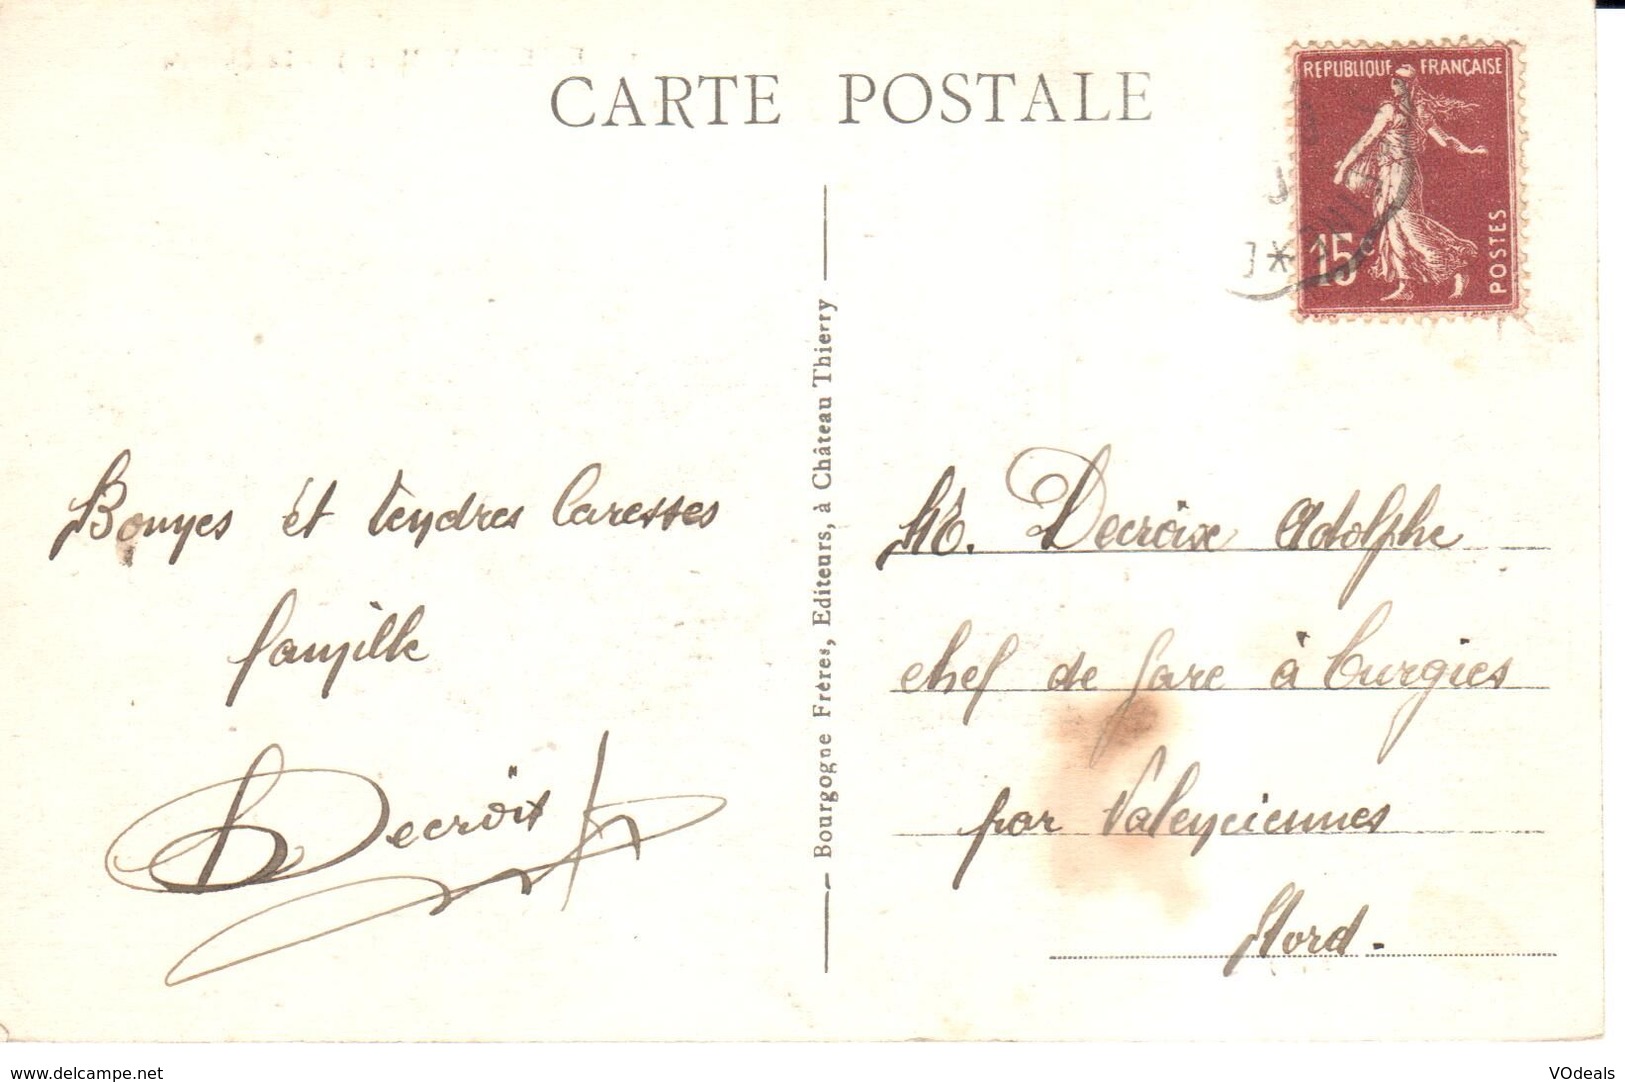 CARTE POSTALE
REPUBLIQUE FRANÇAISE
15c
POSTES
Bonnes et tendres Caresses
famille
Decroix
Bourgogne Frères, Editeurs, à Château Thierry
Mr. Decroix Adolphe
chef de gare à Curgies
par Valenciennes
Nord.
www.delcampe.net
VOdeals